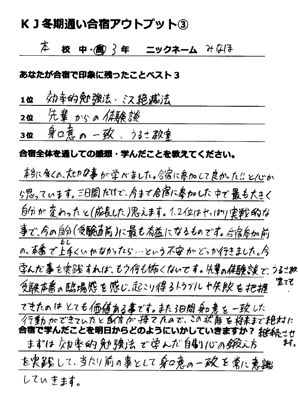 KJ冬期通い合宿アウトプット③
本 校 中・高 3年 ニックネーム みなほ
あなたが合宿で印象に残ったことベスト3
1位 効率的勉強法・ミス絶滅法
2位 先輩からの体験談
3位 身口意の一致、うるさ教室
合宿全体を通しての感想・学んだことを教えてください。
本当に多くの大切な事が学べました。合宿に参加して良かった!!と心か
ら思っています。三日間だけで、今まで合宿に参加した中で最も大きく
自分が変わったと(成長した)思えます。1,2位はやっぱり実戦的な
事で、今の自分(受験直前)に最も有益になるものです。合宿参加前
の、本番で上手くいかなかったら…という不安がどっか行きました。今
学んだ事を実践すれば、もう何も怖くないです。先輩の体験談で、うるさ教
室でも
受験本番の臨場感を感じ、起こり得るトラブルや失敗を把握
できたのはとても価値ある事です。また3日間身口意を一致した
行動ができていたと自信が持てたので、この状態を将来まで絶対に
継続させます。
合宿で学んだことを明日からどのようにいかしていきますか?
まずは効率的勉強法で学んだ自制心の鍛え方
を実践して、当たり前の事として身口意の一致を常に意識
していきます。